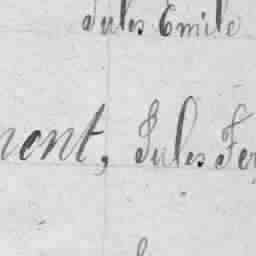 Jules Emile
nent, Jules Fer